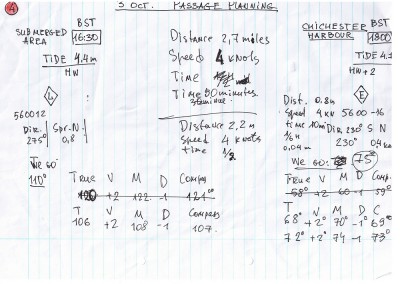 4
5 OCT. PASSAGE PLANNING
SUBMERGED
AREA
BST
16:30
TIDE 4.4m
HW
L
560012
Dir. Spr. N.
275° 0,8
We go
110°
Distance 2,7 miles
Speed 4 knots
Time
Time 50 minutes
Distance 2,2 m
Speed 4 knots
time 1/2
True V M D Compass
120 +2 122 -1 121°
T V M D Compass
106 +2 108 -1 107.
CHICHESTER
HARBOUR
BST
1800
TIDE 4.1
HW+2
E
Dist. 0.8m
Speed 4 kN 5600-16
time 10m Dir. 230° S N
0,04m 230° 04
We go: 75°
True V M D Comp.
58° +2 60 -1 59°
T V M D C
68° +2° 70° -1° 69°
72° +2° 74 -1 73°